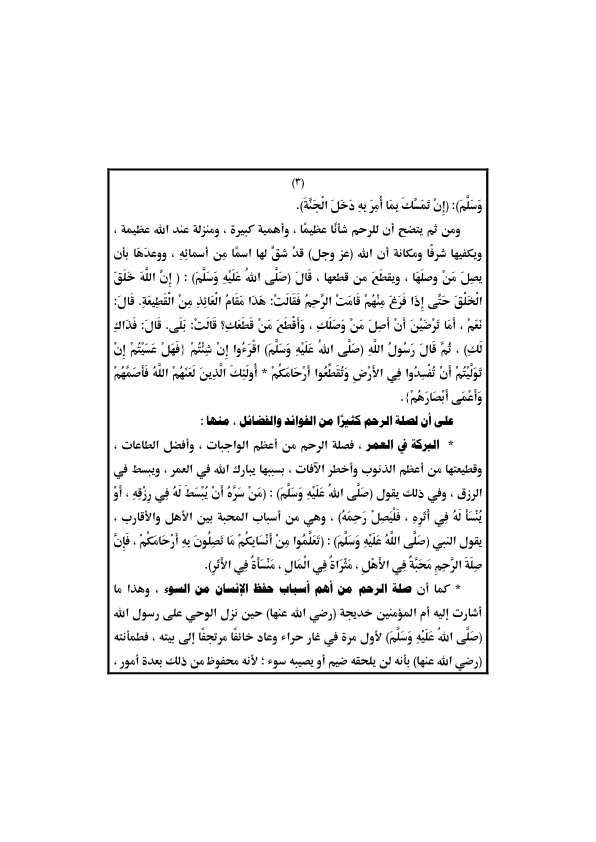 (٣)
وَسَلَّمَ): (إِنْ تَمَسَّكَ بِمَا أُمِرَ بِهِ دَخَلَ الْجَنَّةَ).
ومن ثم يتضح أن للرحم شأنًا عظيمًا ، وأهمية كبيرة ، ومنزلة عند الله عظيمة ،
ويكفيها شرفًا ومكانة أن الله (عز وجل) قدْ شقَّ لها اسمًا مِن أسمائهِ ، ووعدَهَا بأن
يصِلَ مَنْ وصلَهَا ، ويقطَعَ من قطعها ، قَالَ (صَلَّى اللهُ عَلَيْهِ وَسَلَّمَ) : ( إِنَّ اللَّهَ خَلَقَ
الْخَلْقَ حَتَّى إِذَا فَرَغَ مِنْهُمْ قَامَتْ الرَّحِمُ فَقَالَتْ: هَذَا مَقَامُ الْعَائِذِ مِنْ الْقَطِيعَةِ. قَالَ:
نَعَمْ ، أَمَا تَرْضَيْنَ أَنْ أَصِلَ مَنْ وَصَلَكِ ، وَأَقْطَعَ مَنْ قَطَعَكِ؟ قَالَتْ: بَلَى. قَالَ: فَذَاكِ
لَكِ) ، ثُمَّ قَالَ رَسُولُ اللَّهِ (صَلَّى اللهُ عَلَيْهِ وَسَلَّمَ) اقْرَءُوا إِنْ شِئْتُمْ {فَهَلْ عَسَيْتُمْ إِنْ
تَوَلَّيْتُمْ أَنْ تُفْسِدُوا فِي الأَرْضِ وَتُقَطِّعُوا أَرْحَامَكُمْ * أُولَئِكَ الَّذِينَ لَعَنَهُمْ اللَّهُ فَأَصَمَّهُمْ
وَأَعْمَى أَبْصَارَهُمْ}.
على أن لصلة الرحم كثيرًا من الفوائد والفضائل ، منها :
* البركة في العمر ، فصلة الرحم من أعظم الواجبات ، وأفضل الطاعات ،
وقطيعتها من أعظم الذنوب وأخطر الآفات ، بسببها يبارك الله في العمر ، ويبسط في
الرزق ، وفي ذلك يقول (صَلَّى اللهُ عَلَيْهِ وَسَلَّمَ) : (مَنْ سَرَّهُ أَنْ يُبْسَطَ لَهُ فِي رِزْقِهِ ، أَوْ
يُنْسَأَ لَهُ فِي أَثَرِهِ ، فَلْيَصِلْ رَحِمَهُ) ، وهي من أسباب المحبة بين الأهل والأقارب ،
يقول النبي (صَلَّى اللَّهُ عَلَيْهِ وَسَلَّمَ) : (تَعَلَّمُوا مِنْ أَنْسَابِكُمْ مَا تَصِلُونَ بِهِ أَرْحَامَكُمْ ، فَإِنَّ
صِلَةَ الرَّحِمِ مَحَبَّةٌ فِي الأَهْلِ ، مَثْرَاةٌ فِي الْمَالِ ، مَنْسَأَةٌ فِي الأَثَرِ).
* كما أن صلة الرحم من أهم أسباب حفظ الإنسان من السوء ، وهذا ما
أشارت إليه أم المؤمنين خديجة (رضي الله عنها) حين نزل الوحي على رسول الله
(صَلَّى اللهُ عَلَيْهِ وَسَلَّمَ) لأول مرة في غار حراء وعاد خائفًا مرتجفًا إلى بيته ، فطمأنته
(رضي الله عنها) بأنه لن يلحقه ضيم أو يصيبه سوء ؛ لأنه محفوظ من ذلك بعدة أمور ،